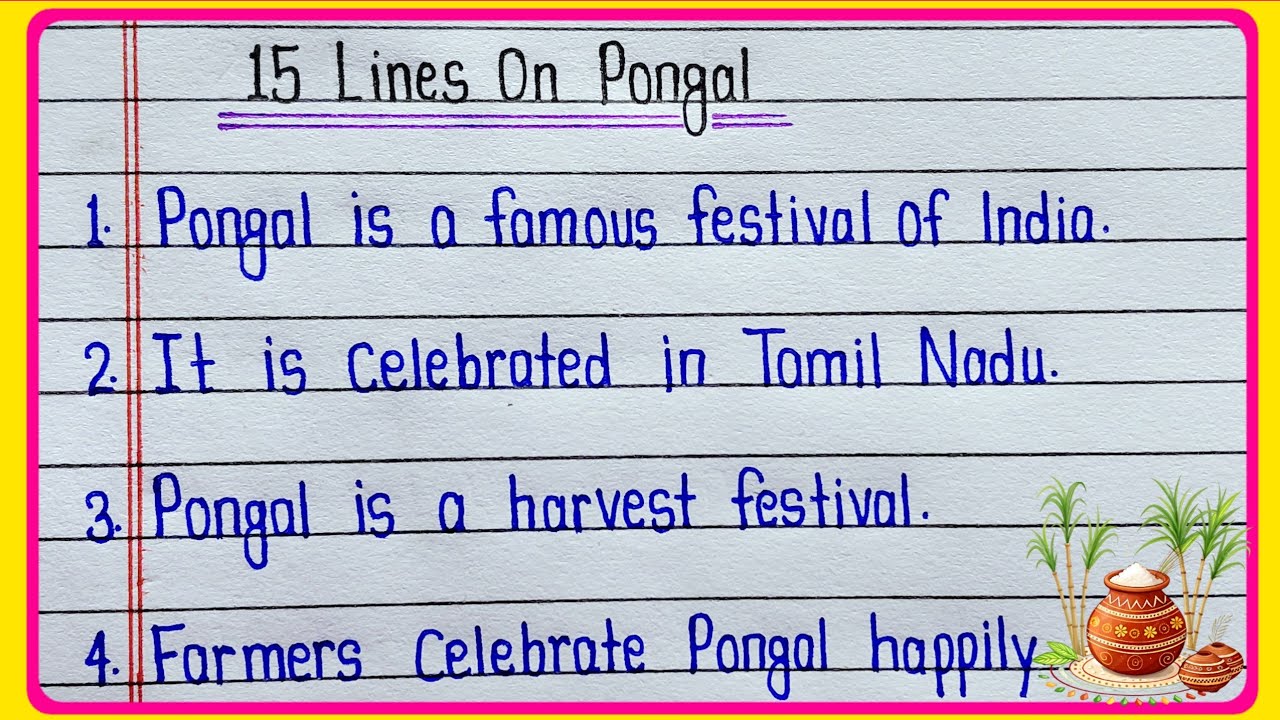 15 Lines On Pongal
1. Pongal is a famous festival of India.
2. It is celebrated in Tamil Nadu.
3. Pongal is a harvest festival.
4. Farmers Celebrate Pongal happily